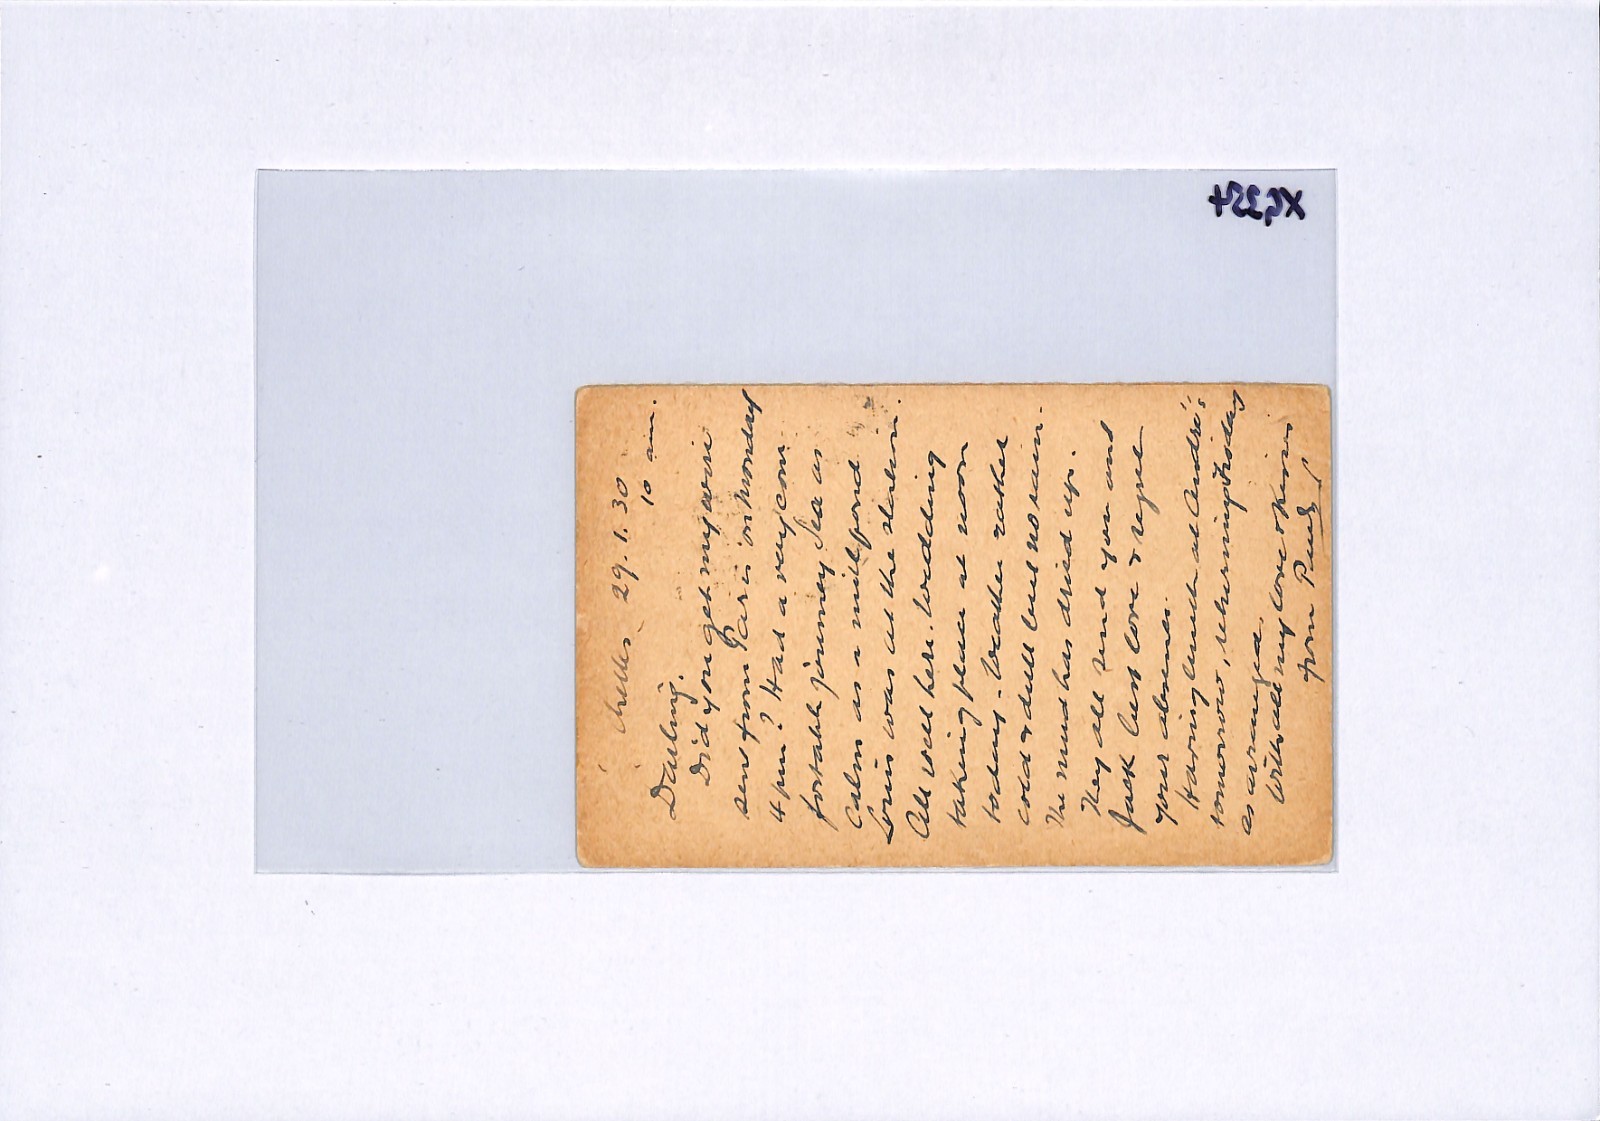 Chelles 29.1.30
10 am.
Darling.
Did you get my wire
sent from Paris on Monday
4 pm? Had a very com
fortable journey Sea as
Calm as a mill pond
Louis was at the station.
All well here. Wedding
taking place at noon
today. Weather rather
cold & dull but no rain.
The mud has dried up.
They all send you and
Jack best love & regret
your absence.
Having lunch at André's
tomorrow, returning Friday
as arranged.
With all my love & kisses
from Paul